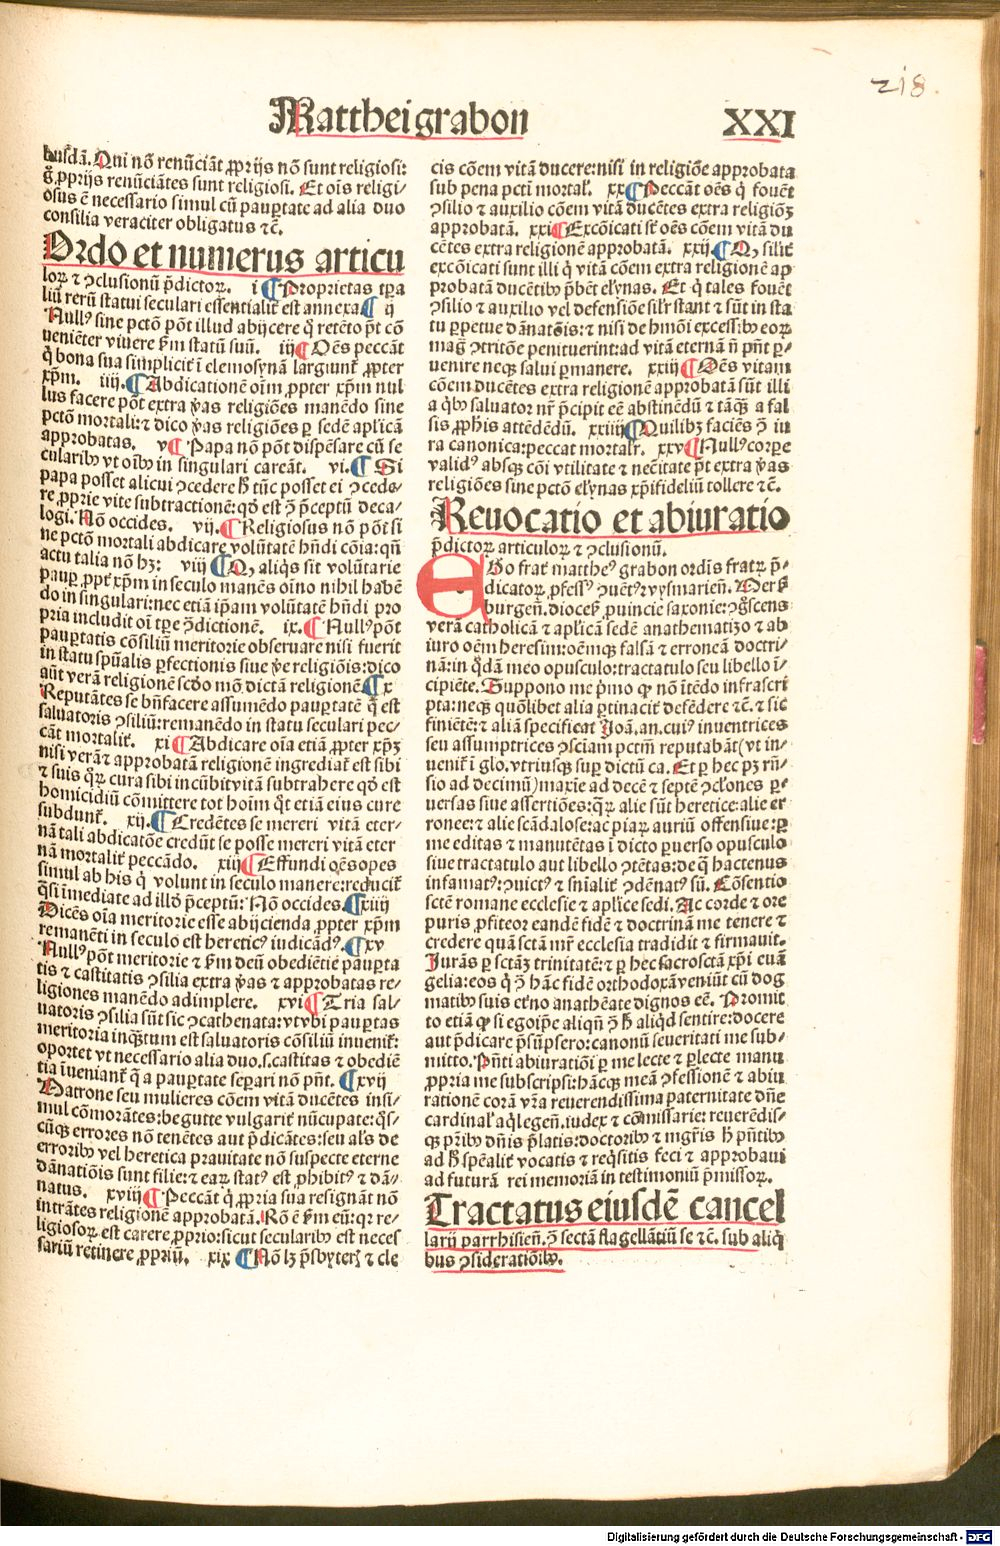 218.
Matthei grabon XXI
busdã. Qui nõ renũciãt ꝓprijs nõ sunt religiosi:
g̊ ꝓprijs renũciãtes sunt religiosi. Et oĩs religi/
osus ẽ necessario simul cũ paup̱tate ad alia duo
consilia veraciter obligatus ⁊c̃.
Ordo et numerus articu
loꝝ ⁊ ꝯclusionũ p̃dictoꝝ. i ¶ Proprietas tp̱a
liũ rerũ statui seculari essentialiť est annexa ¶ ij
Nullꝰ sine pctõ põt illud abijcere q̇ retẽto p̃t cõ
ueniẽter viuere ẜm statũ suũ. iij ¶ Oẽs peccãt
q̇ bona sua simpliciť ĩ elemosynã largiunť ꝓpter
xp̃m. iiij. ¶ Abdicationẽ oĩm ꝓpter xp̃m nul
lus facere põt extra ṽas religiões manẽdo sine
pctõ mortali: ⁊ dico ṽas religiões per sedẽ aplicã
approbatas. v ¶ Papa nõ põt dispẽsare cũ se
cularibꝫ vt oĩbꝫ in singulari careãt. vi. ¶ Si
papa posset alicui ꝯcedere ħ tũc posset ei ꝯcede/
re ꝓprie vite subtractionẽ: qđ est ꝯ̃ p̃ceptũ deca/
logi. Nõ occides. vij. ¶ Religiosus nõ põt si
ne pctõ mortali abdicare volũtatẽ hñdi cõia: qñ
actu talia nõ hꝫ: viij ¶ Q, aliqs sit volũtarie
paup̱ ꝓpť xp̃m in seculo manẽs oĩno nihil habẽ
do in singulari: nec etiã ip̃am volũtatẽ hñdi pro
pria includit oĩ tp̱e ꝯ̃dictionẽ. ix. ¶ Nullꝰ põt
paup̱tatis cõsiliũ meritorie obseruare nisi fuerit
in statu sp̃ualis perfectionis siue ṽe religiõis: dico
aũt verã religionẽ scďo mõ dictã religionẽ ¶ x
Reputãtes se bñfacere assumẽdo paup̱tatẽ q̇ est
saluatoris ꝯsiliũ: remanẽdo in statu seculari pec/
cãt mortaliť. xi ¶ Abdicare oĩa etiã ꝓpter xp̃ꝫ
nisi verã ⁊ approbatã religionẽ ingrediať est sibi
⁊ suis q̃ꝝ cura sibi incũbit vitã subtrahere qđ est
homicidiũ cõmittere tot hoĩm q̊t etiã eius cure
subdunť. xij. ¶ Credẽtes se mereri vitã eter/
nã tali abdicatõe credũt se posse mereri vitã eter
nã mortaliť peccãdo. xiij ¶ Effundi oẽs opes
simul ab his q̇ volunt in seculo manere: reduciť
q̃si ĩmediate ad illđ p̃ceptũ: Nõ occides. ¶ xiiij
Dicẽs oĩa meritorie esse abijcienda ꝓpter xp̃m
remanẽti in seculo est hereticꝰ iudicãdꝰ. ¶ xv
Nullꝰ põt meritorie ⁊ ẜm deũ obediẽtie paup̱ta
tis ⁊ castitatis ꝯsilia extra ṽas ⁊ approbatas re/
ligiones manẽdo adimplere. xvi ¶ Tria sal/
uatoris ꝯsilia sũt sic ꝯcathenata: vt vbi paup̱tas
meritoria inqꝫtum est saluatoris cõsiliũ inueniť:
oportet vt necessario alia duo. s. castitas ⁊ obediẽ
tia ĩueniant q̃ a paup̱tate sep̱ari nõ pñt. ¶ xvij
Patrone seu mulieres cõem vitã ducẽtes insi/
mul cõmorãtes: begutte vulgariť nũcupate: q̃s/
cũqꝫ errores nõ tenẽtes aut p̃dicãtes: seu aľs de
erroribꝫ vel heretica prauitate nõ suspecte eterne
dãnatiõis sunt filie: ⁊ eaꝝ statꝰ est ꝓhibitꝰ ⁊ dã/
natus. xviij ¶ Peccãt q̇ ꝓpria sua resignãt nõ
intrãtes religionẽ approbatã. Rõ ẽ ẜm eũ: qꝛ re/
ligiosoꝝ est carere ꝓprio: sicut secularibꝫ est neces
sariũ retinere ꝓpriũ. xix ¶ Nõ lꝫ p̃sbyteř ⁊ cle
cis cõem vitã ducere: nisi in religiõe approbata
sub pena pcti mortaľ. xx ¶ Peccãt oẽs q̇ fouẽt
ꝯsilio ⁊ auxilio cõem vitã ducẽtes extra religiõꝫ
approbatã. xxi ¶ Excõicati sť oẽs cõem vitã du
cẽtes extra religionẽ approbatã. xxij ¶ Q, siliť
excõicati sunt illi q̇ vitã cõem extra religionẽ ap
probatã ducẽtibꝫ p̃bẽt elỹnas. Et q̇ tales fouẽt
ꝯsilio ⁊ auxilio vel defensiõe siľr stant ⁊ sũt in sta
tu perpetue dãnatõis: ⁊ nisi de hmõi excessibꝫ eoꝝ
mag̃ ꝯtritõe penituerint: ad vitã eternã ñ pñt per/
uenire neqꝫ salui permanere. xxiij ¶ Oẽs vitam
cõem ducẽtes extra religionẽ approbatã sũt illi
a q̇bꝫ saluator nr̃ p̃cipit eẽ abstinẽdũ ⁊ tãqꝫ a fal
sis ꝓphis attẽdẽdũ. xxiiij ¶ Quilibꝫ faciẽs ꝯ̃ iu
ra canonica: peccat mortaľr. xxv ¶ Nullꝰ corpe
validꝰ absqꝫ cõi vtilitate ⁊ necĩtate p̃t extra ṽas
religiões sine pctõ elỹnas xp̃ifideliũ tollere ⁊c̃.
Reuocatio et abiuratio
p̃dictoꝝ articuloꝝ ⁊ ꝯclusionũ.
EGo frať mattheꝰ grabon ordĩs fratꝝ p̃/
dicatoꝝ ꝓfessꝰ ꝯuẽtꝰ vysmarień. Merß
burgeñ. dioceß ꝓuincie saxonie: ꝯg̊scens
verã catholicã ⁊ aplicã sedẽ anathematizo ⁊ ab
iuro oẽm heresim: oẽmqꝫ falsã ⁊ erroneã doctri/
nã: in q̇dã meo opusculo: tractatulo seu libello ĩ/
cipiẽte. Suppono me p̃mo ꝙ nõ ĩtẽdo infrascri
pta: neqꝫ quõlibet alia p̱tinaciť defẽdere ⁊c̃. ⁊ sic
finiẽte: ⁊ aliã specificat Joã. an. cuiꝰ inuentrices
seu assumptrices ꝯsciam pctm̃ reputabãt (vt in/
ueniť ĩ glo. vtriusqꝫ suꝑ dictũ ca. Et per hec pꝫ rñ/
sio ad decimũ) maxĩe ad decẽ ⁊ septẽ ꝯcľones per/
uersas siue assertiões: q̃ꝝ alie sũt heretice: alie er
ronee: ⁊ alie scãdalose: ac piaꝝ auriũ offensiue: per
me editas ⁊ manutẽtas ĩ dicto peruerso opusculo
siue tractatulo aut libello ꝯtẽtas: de q̇ hactenus
infamatꝰ: ꝯuictꝰ ⁊ snĩaliť ꝯdẽnatꝰ sũ. Cõsentio
sctẽ romane ecclesie ⁊ aplice sedi. Ac corde ⁊ ore
puris ꝓfiteor eandẽ fidẽ ⁊ doctrinã me tenere ⁊
credere quã sctã mr̃ ecclesia tradidit ⁊ firmauit.
Jurãs per sctãꝫ trinitatẽ: ⁊ per hec sacrosctã xp̃i euã
gelia: eos q̇ ꝯ̃ hãc fidẽ orthodoxã veniũt cũ dog
matibꝫ suis eťno anathẽate dignos eẽ. Promit
to etiã ꝙ si egoip̃e aliqñ ꝯ̃ ħ aliq̇d sentire: docere
aut p̃dicare p̃sũpsero: canonũ seueritati me sub/
mitto. Pñti abiuratiõi per me lecte ⁊ perlecte manu
ꝓpria me subscripsi: hãcqꝫ meã ꝯfessionẽ ⁊ abiu
rationẽ corã vr̃a reuerendissima paternitate dñe
cardinaľ aq̇legeñ. iudex ⁊ cõmissarie: reuerẽdis/
qꝫ pr̃ibꝫ dñis p̃latis: doctoribꝫ ⁊ mgr̃is ħ pñtibꝫ
ad ħ sp̃ealiť vocatis ⁊ req̇sitis feci ⁊ approbaui
ad futurã rei memoriã in testimoniũ p̃missoꝝ.
Tractatus eiusdẽ cancel
larij parrhisieñ. ꝯ̃ sectã flagellãtiũ se ⁊c̃. sub aliq̇
bus ꝯsideratiõibꝫ.
Digitalisierung gefördert durch die Deutsche Forschungsgemeinschaft - DFG